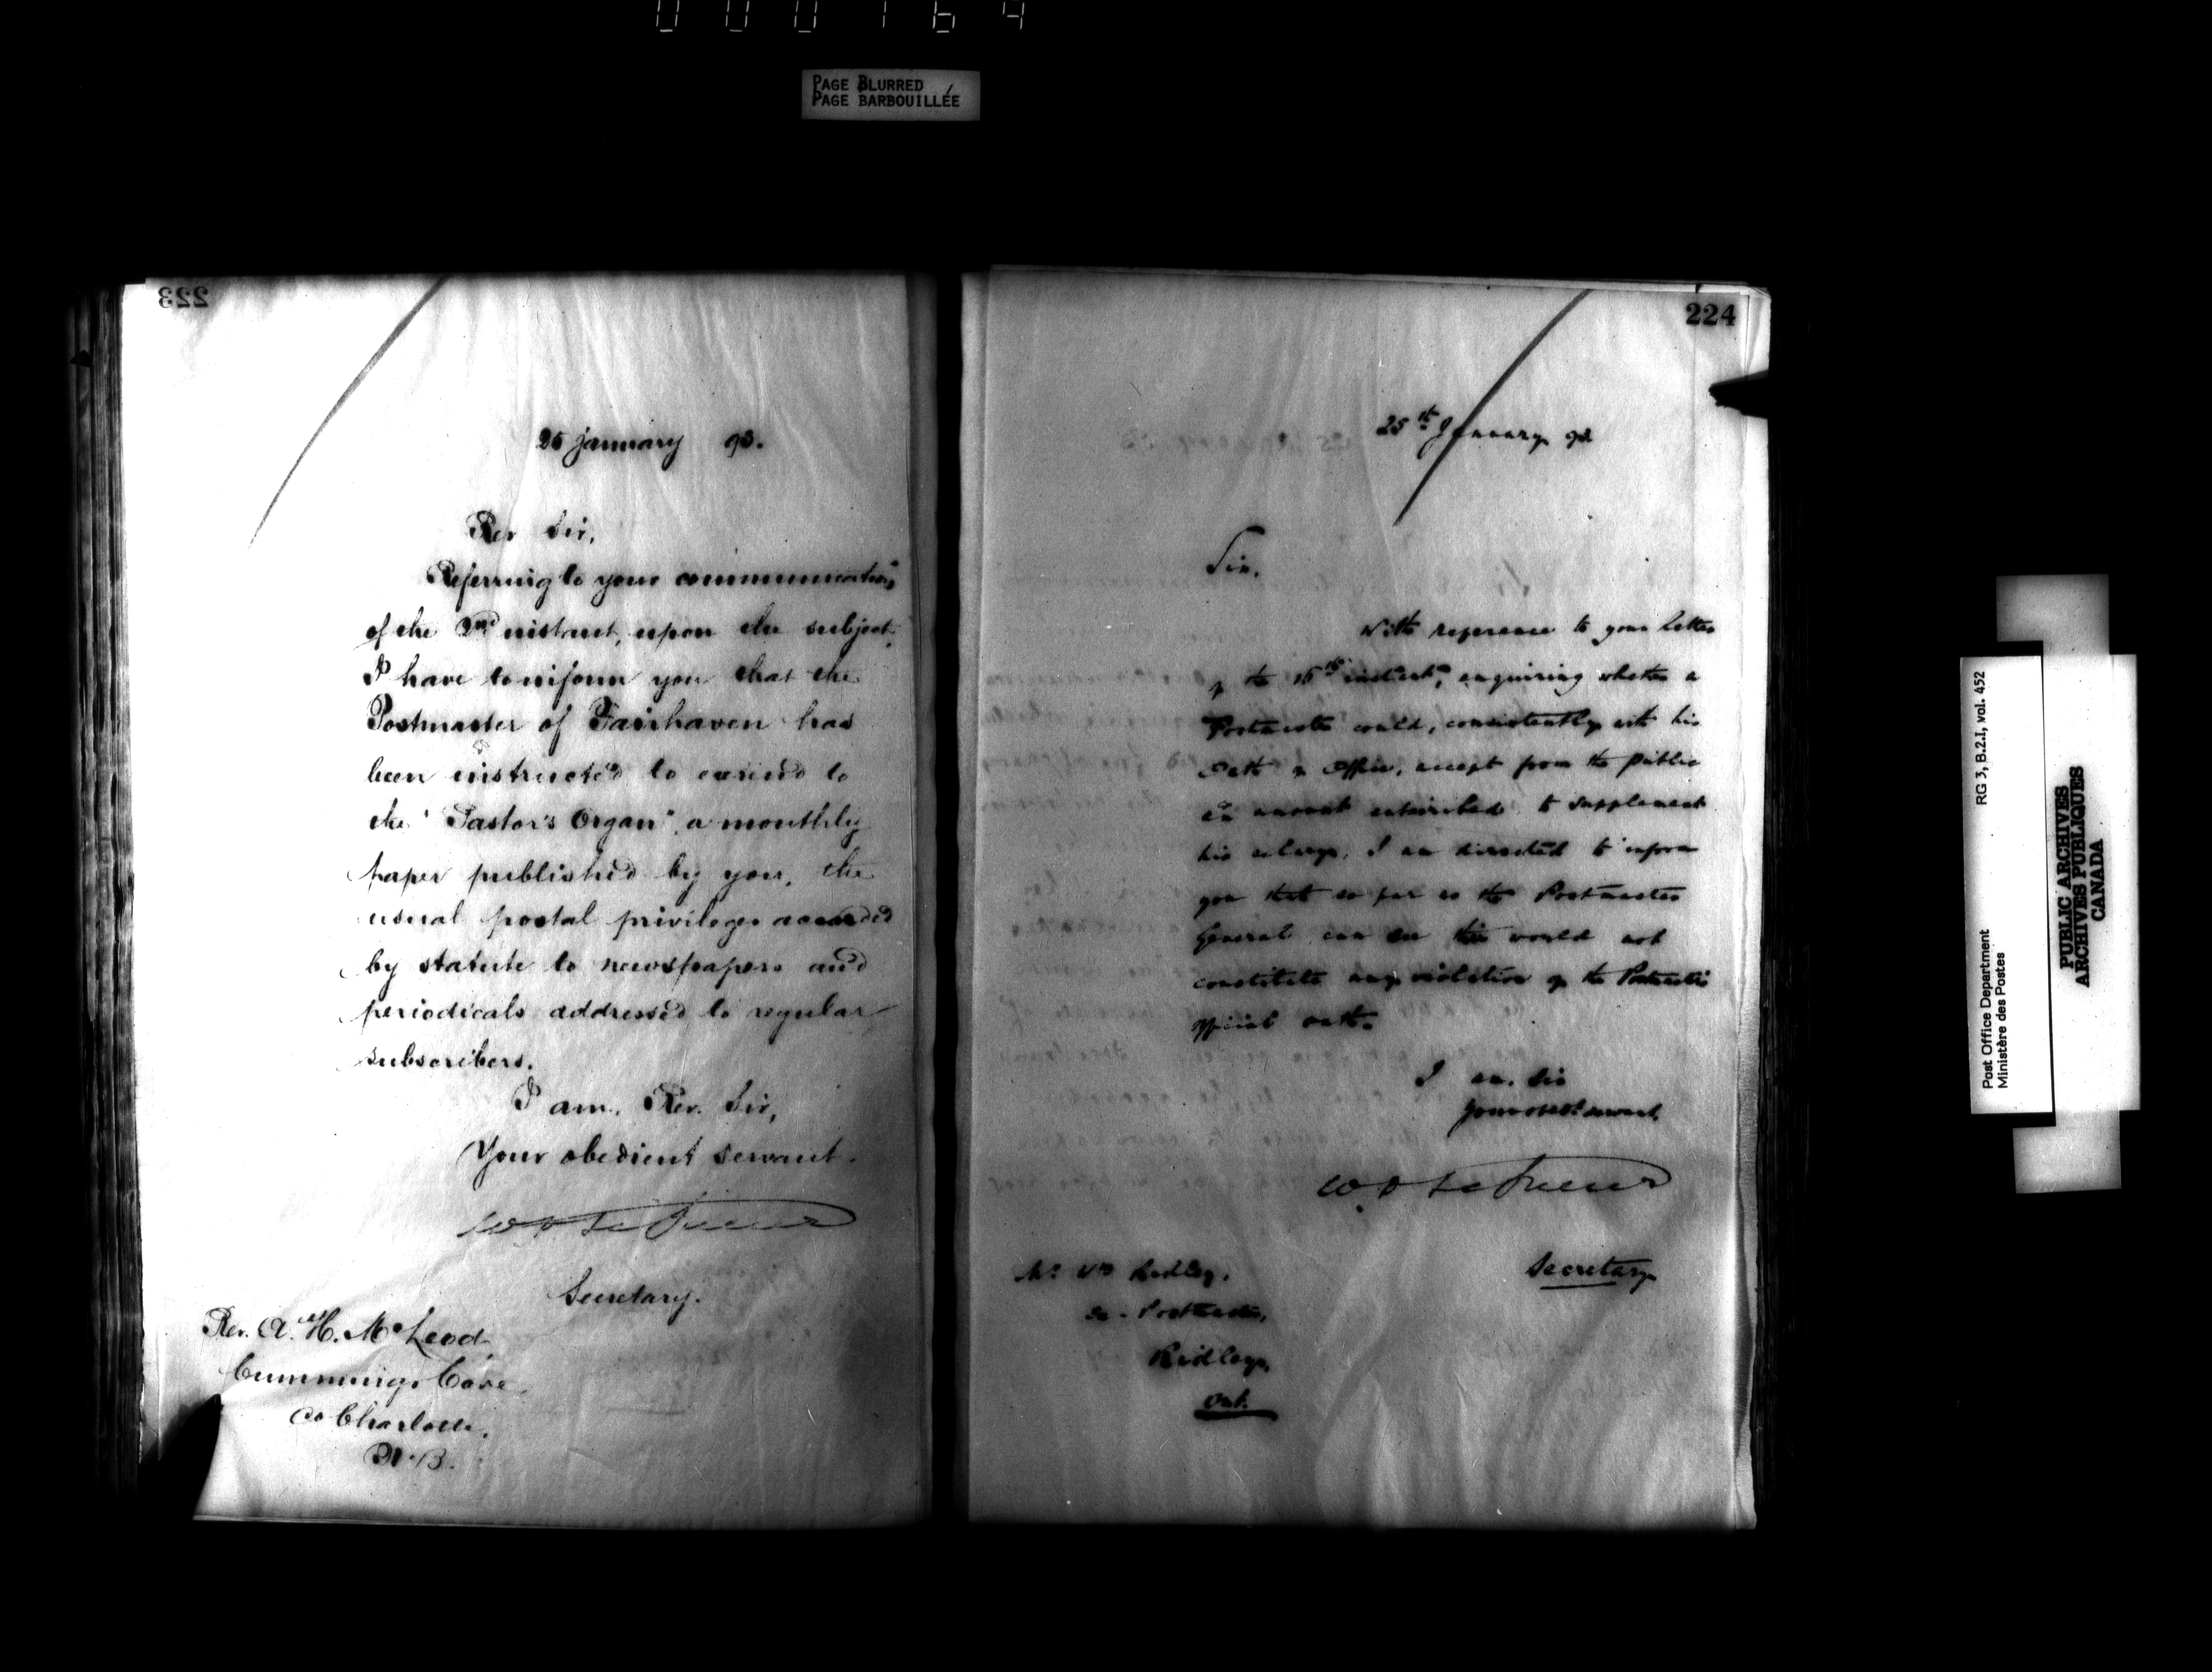 000164
PAGE BLURRED
PAGE BARBOUILLÉE
223
25 January 93.
Rev Sir,
Referring to your communication,
of the 2nd instant, upon the subject,
I have to inform you that the
Postmaster of Fairhaven has
been instructed to extend to
the "Pastor's Organ", a monthly
paper published by you, the
usual postal privileges accorded
by statute to newspapers and
periodicals addressed to regular
subscribers.
I am, Rev. Sir,
Your obedient servant.
W D LeSueur
Secretary.
Rev. A. H. McLeod,
Cummings Cove,
Co Charlotte,
N.B.
224
25th January 93
Sir,
With reference to your letter
of the 16th instant, enquiring whether a
Postmaster could, consistently with his
Oath of Office, accept from the public
an amount subscribed to supplement
his salary, I am directed to inform
you that so far as the Postmaster
General can see this would not
constitute any violation of the Postmaster's
official oath.
I am, Sir
Your obedt servant,
W D LeSueur
Secretary
Mr Wm Ridley,
Postmaster,
Ridley,
Ont.
RG 3, B.2.I, vol. 452
Post Office Department
Ministère des Postes
PUBLIC ARCHIVES
ARCHIVES PUBLIQUES
CANADA